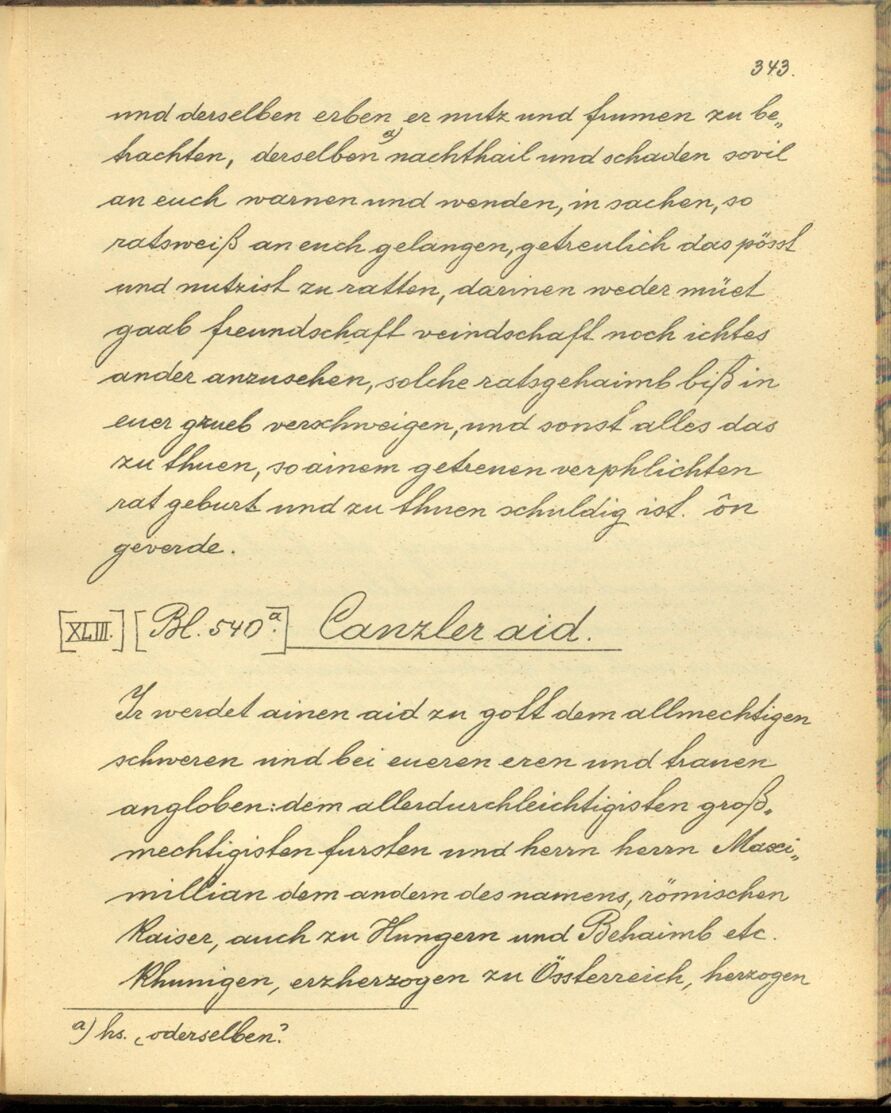 343.
und derselben erben er nutz und frumen zu be„
trachten, derselben a) nachthail und schaden sovil
an euch warnen und wenden, in sachen, so
ratsweiß an euch gelangen, getreulich das pösst
und nutzist zu ratten, darinen weder müet
gaab freundschaft veindschaft noch ichtes
ander anzusehen, solche ratsgehaimb biß in
euer grueb verschweigen, und sonst alles das
zu thuen, so ainem getreuen verphlichten
rat geburt und zu thuen schuldig ist. ôn
geverde.
[XLIII.] [Bl. 540a.] Canzler aid.
Ir werdet ainen aid zu gott dem allmechtigen
schweren und bei eueren eren und trauen
angloben: dem allerdurchleichtigisten groß„
mechtigisten fursten und herrn herrn Maxi„
millian dem andern des namens, römischen
Kaiser, auch zu Hungern und Behaimb etc.
Khunigen, erzherzogen zu Össterreich, herzogen
a) hs. „oderselben“.